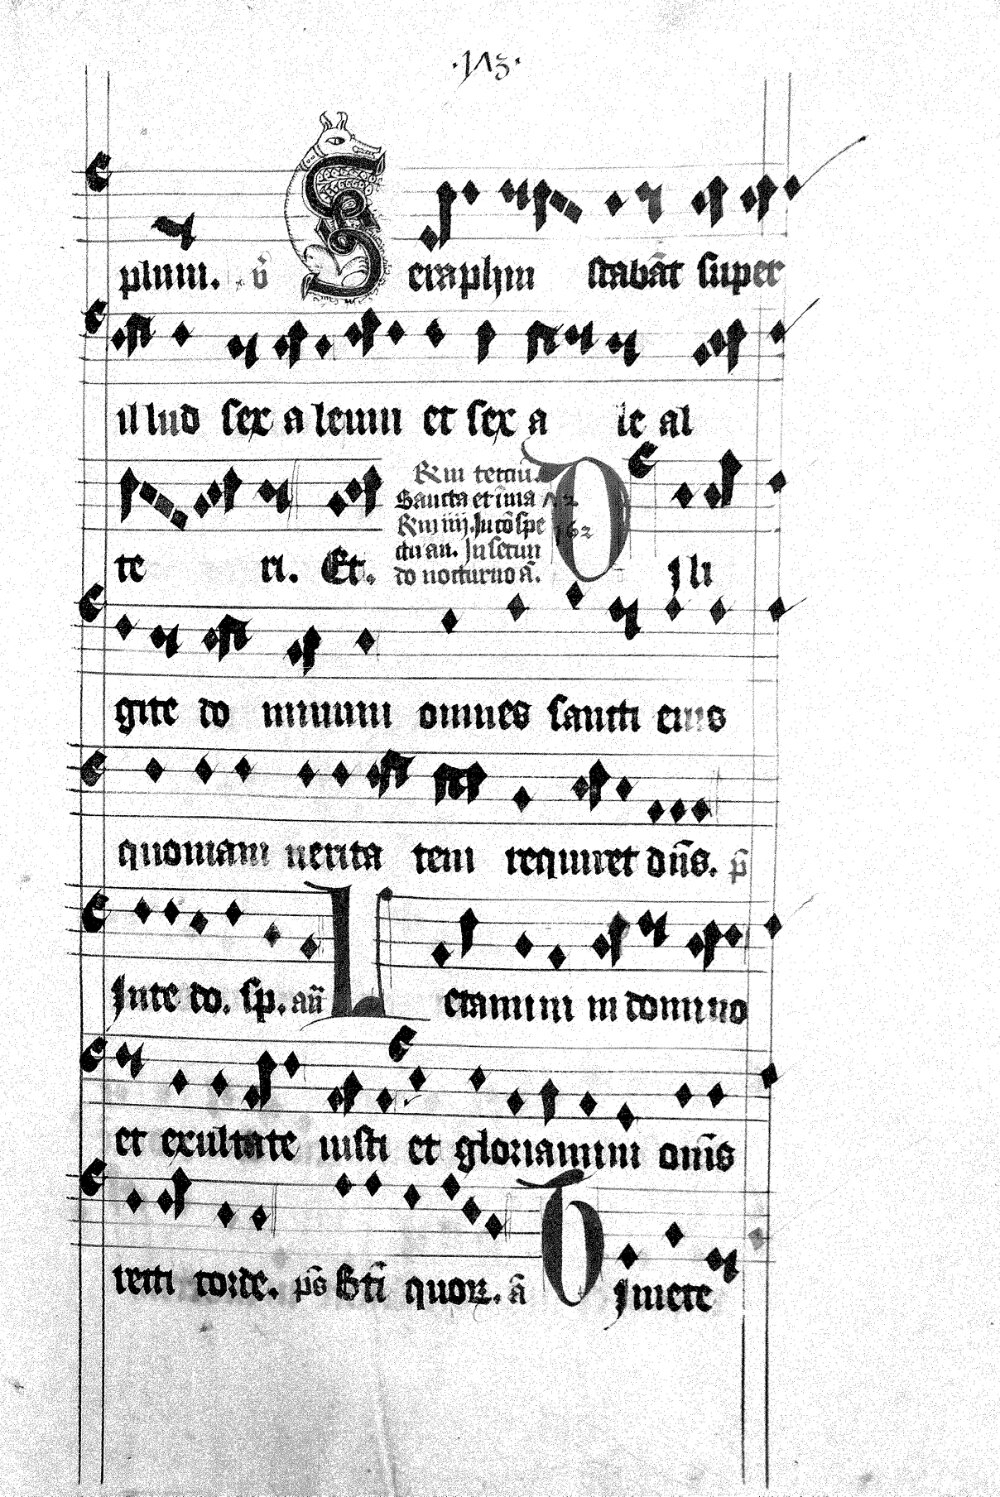 plum. v̄ Seraphin stabāt super
illud sex a le uni et sex a le al
te ri. Et.
R̃m terciū.
Sancta et īma
R̃m iiij. In cōspe
162
ctu an. In secun
do nocturno ā.
Dili
gite do minum omnes sancti eius
quoniam uerita tem requiret dn̄s. p̄
Inte do. sp. an̄ Letamini in domino
et exultate iusti et gloriamini om̄s
recti corde. ps̄ Bt̄i quoꝝ. ā Timete